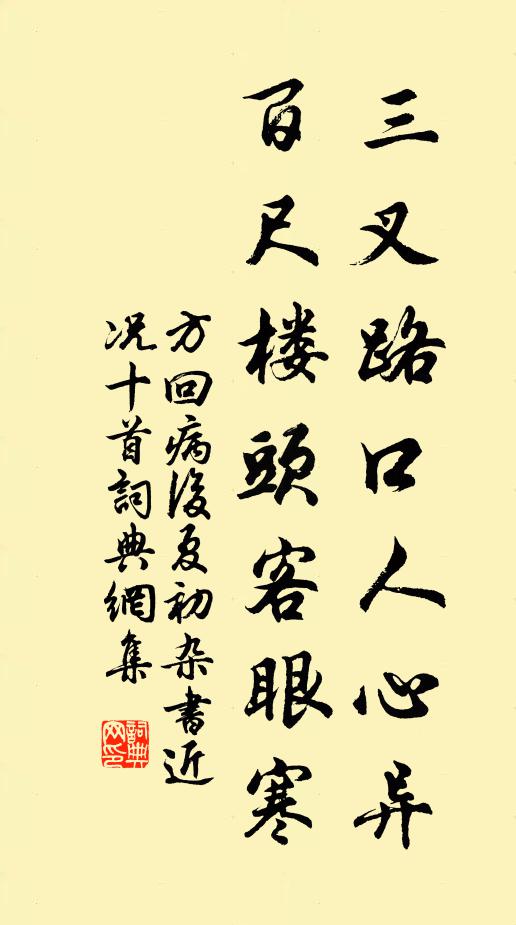 三叉路口人心异
百尺楼頭客眼寒
方回病後夏初杂書近
况十首詞典網集
詞典网印